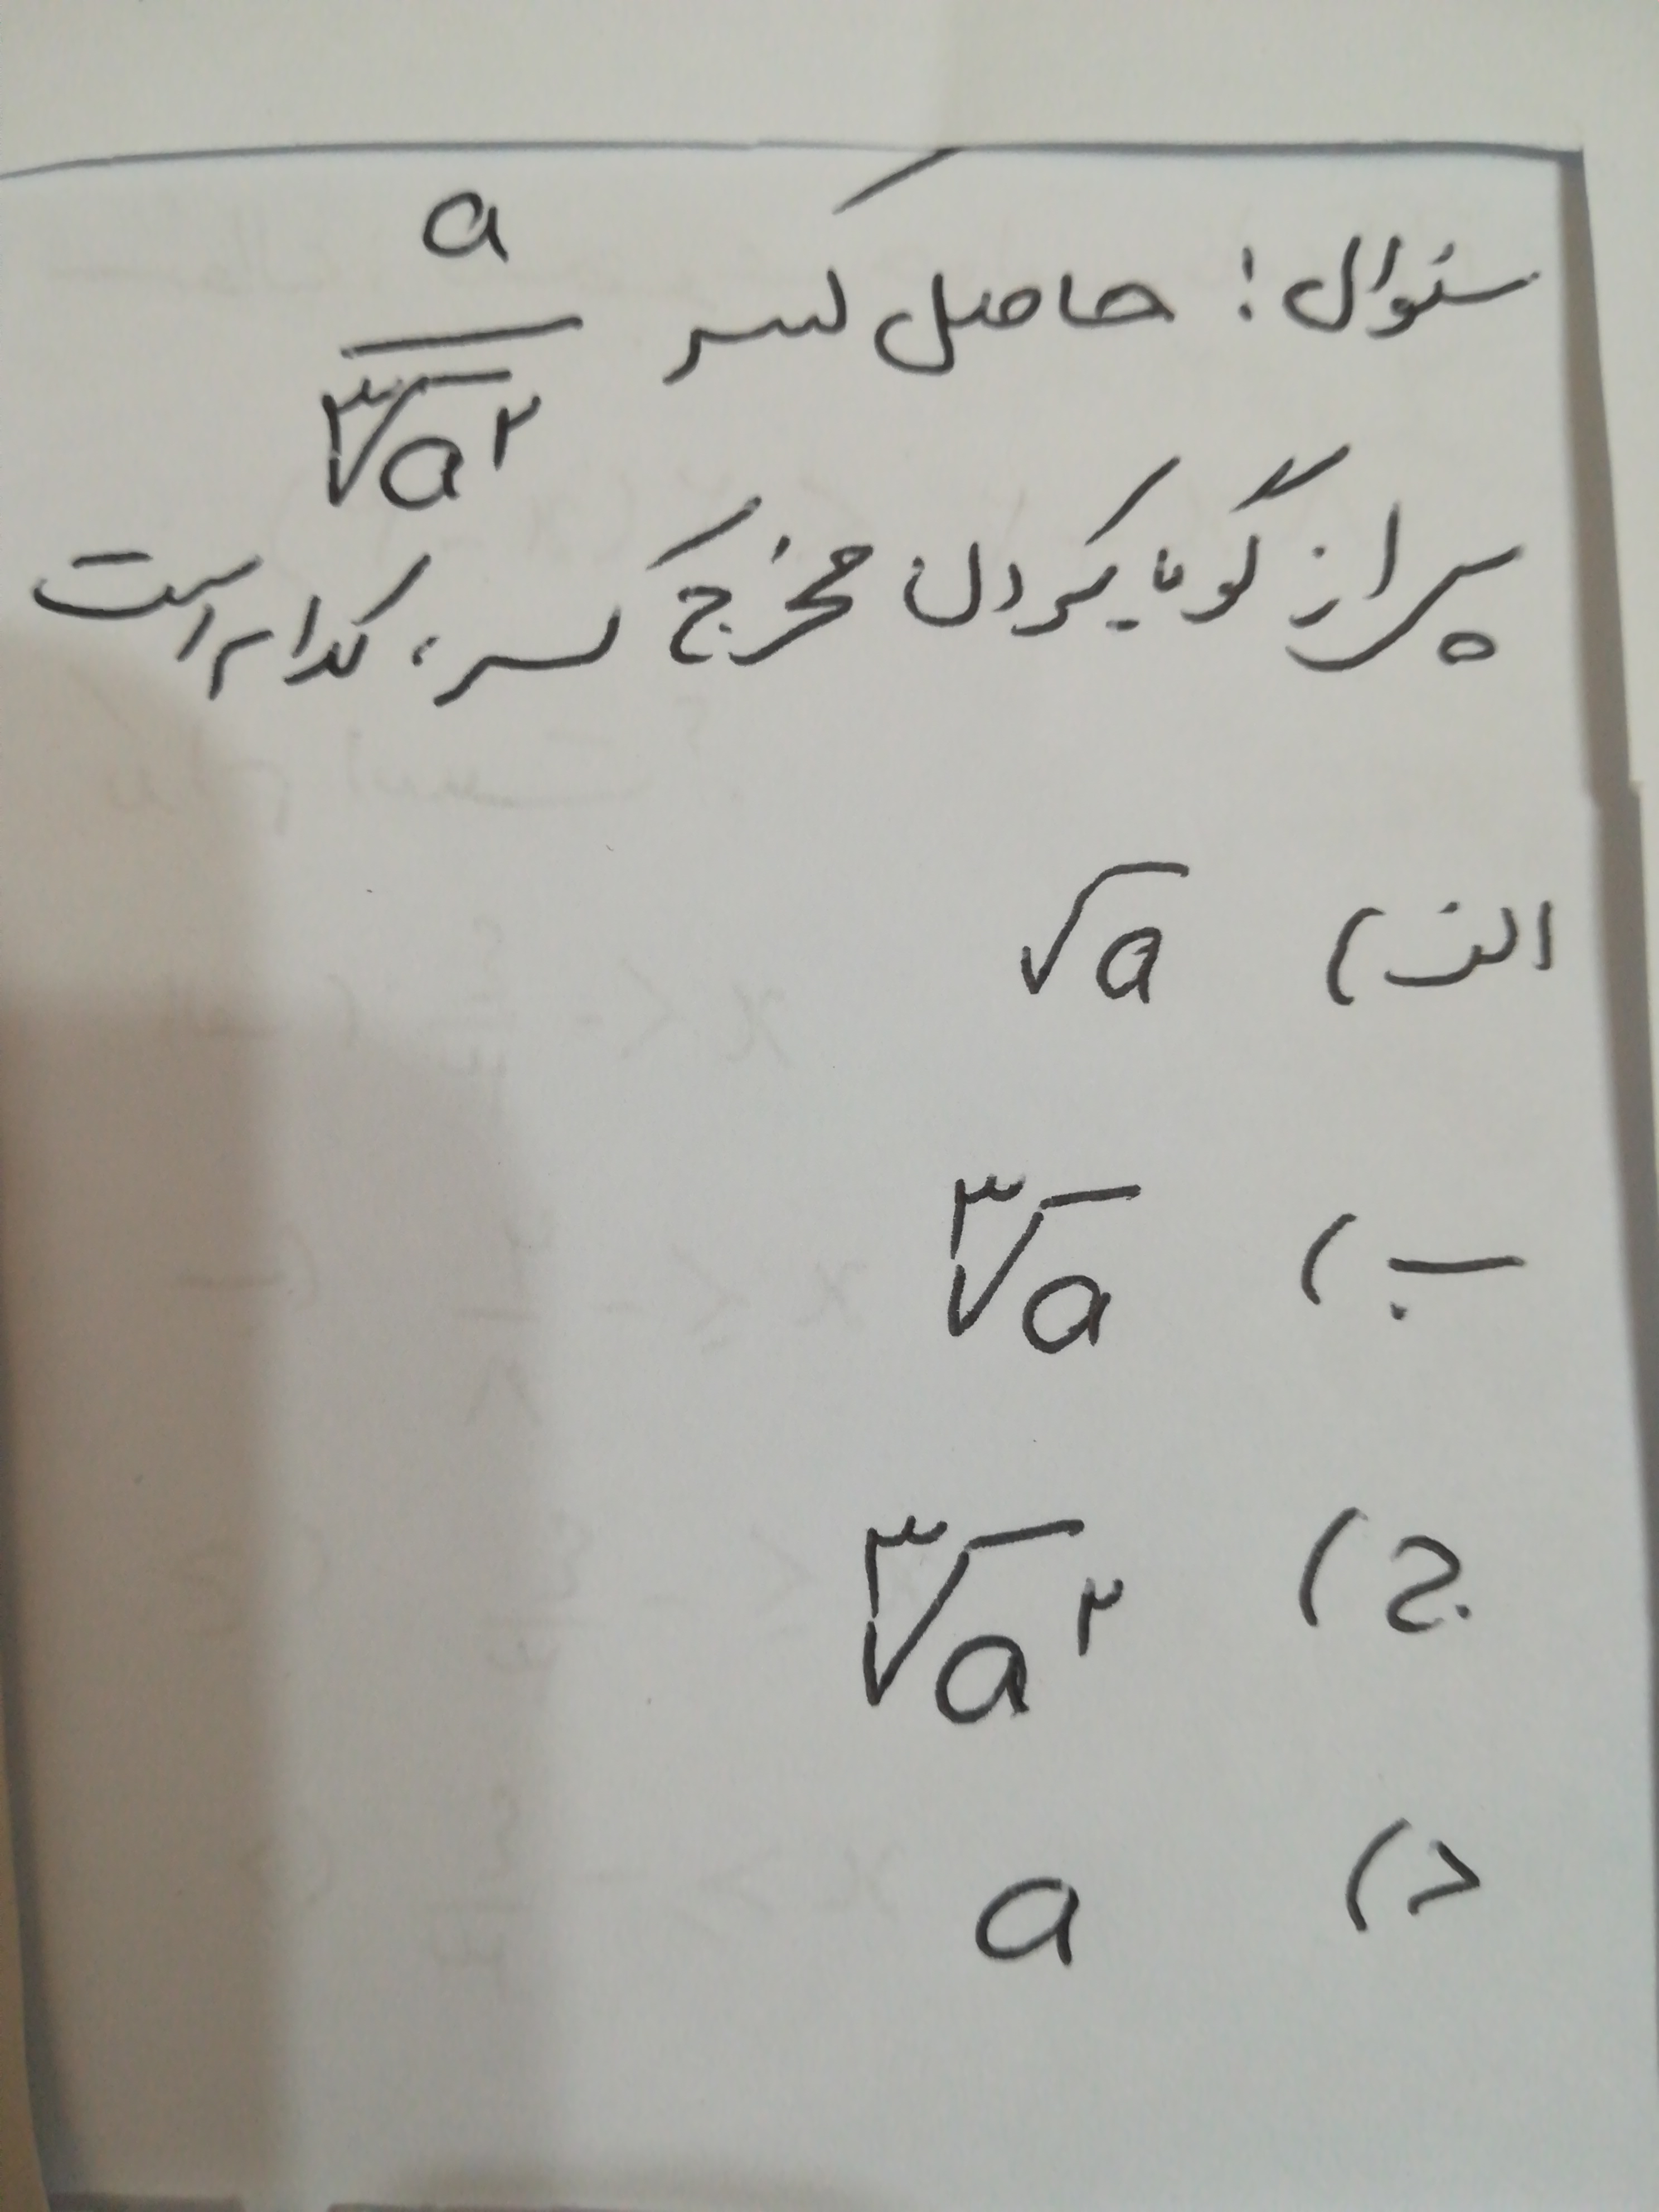 سئوال: حاصل کسر a/∛a۲
پس از گویا کردن مخرج کسر، کدام است
الف) √a
ب) ∛a
ج) ∛a۲
د) a